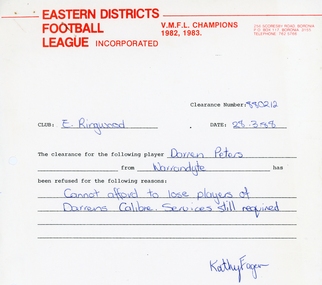 EASTERN DISTRICTS
FOOTBALL
LEAGUE INCORPORATED
V.M.F.L. CHAMPIONS
1982, 1983.
Clearance Number: 880212
CLUB: E. Ringwood DATE: 28.3.88
The clearance for the following player Darren Peters
from Warrandyte has
been refused for the following reasons:
Cannot afford to lose players of
Darrens Calibre. Services still required
Kathy Fagan